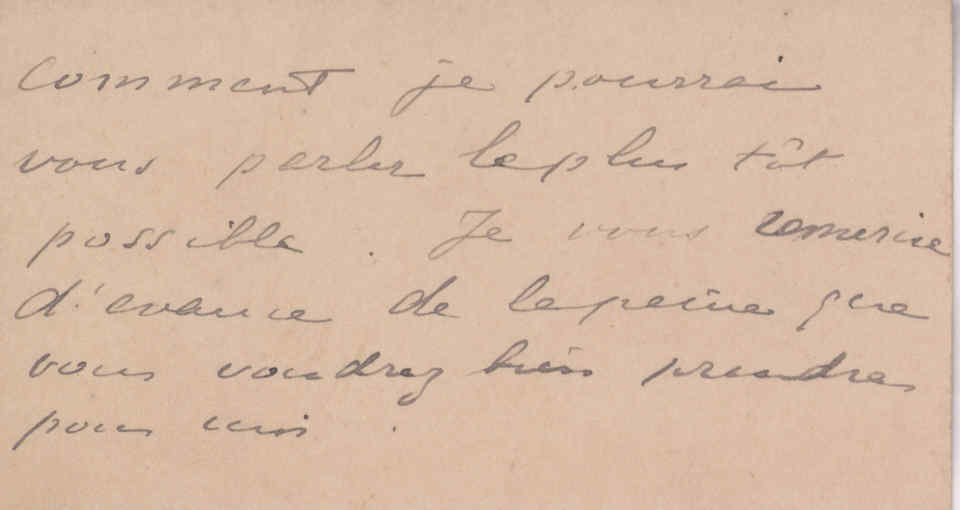 comment je pourrai
vous parler le plus tôt
possible. Je vous remercie
d'avance de la peine que
vous voudrez bien prendre
pour moi.